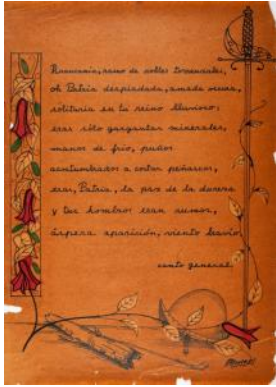 Araucanía, ramo de robles torrenciales,
oh Patria despiadada, amada oscura,
solitaria en tu reino lluvioso:
eras sólo gargantas minerales,
manos de frío, puños
acostumbrados a cortar peñascos,
eras, Patria, la paz de la dureza
y tus hombres eran rumor,
áspera aparición, viento bravío.
canto general.